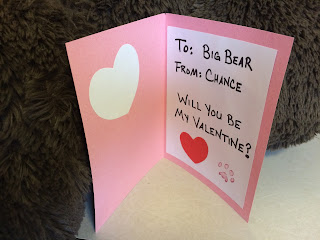 To: Big Bear
From: Chance
Will You Be
My Valentine?